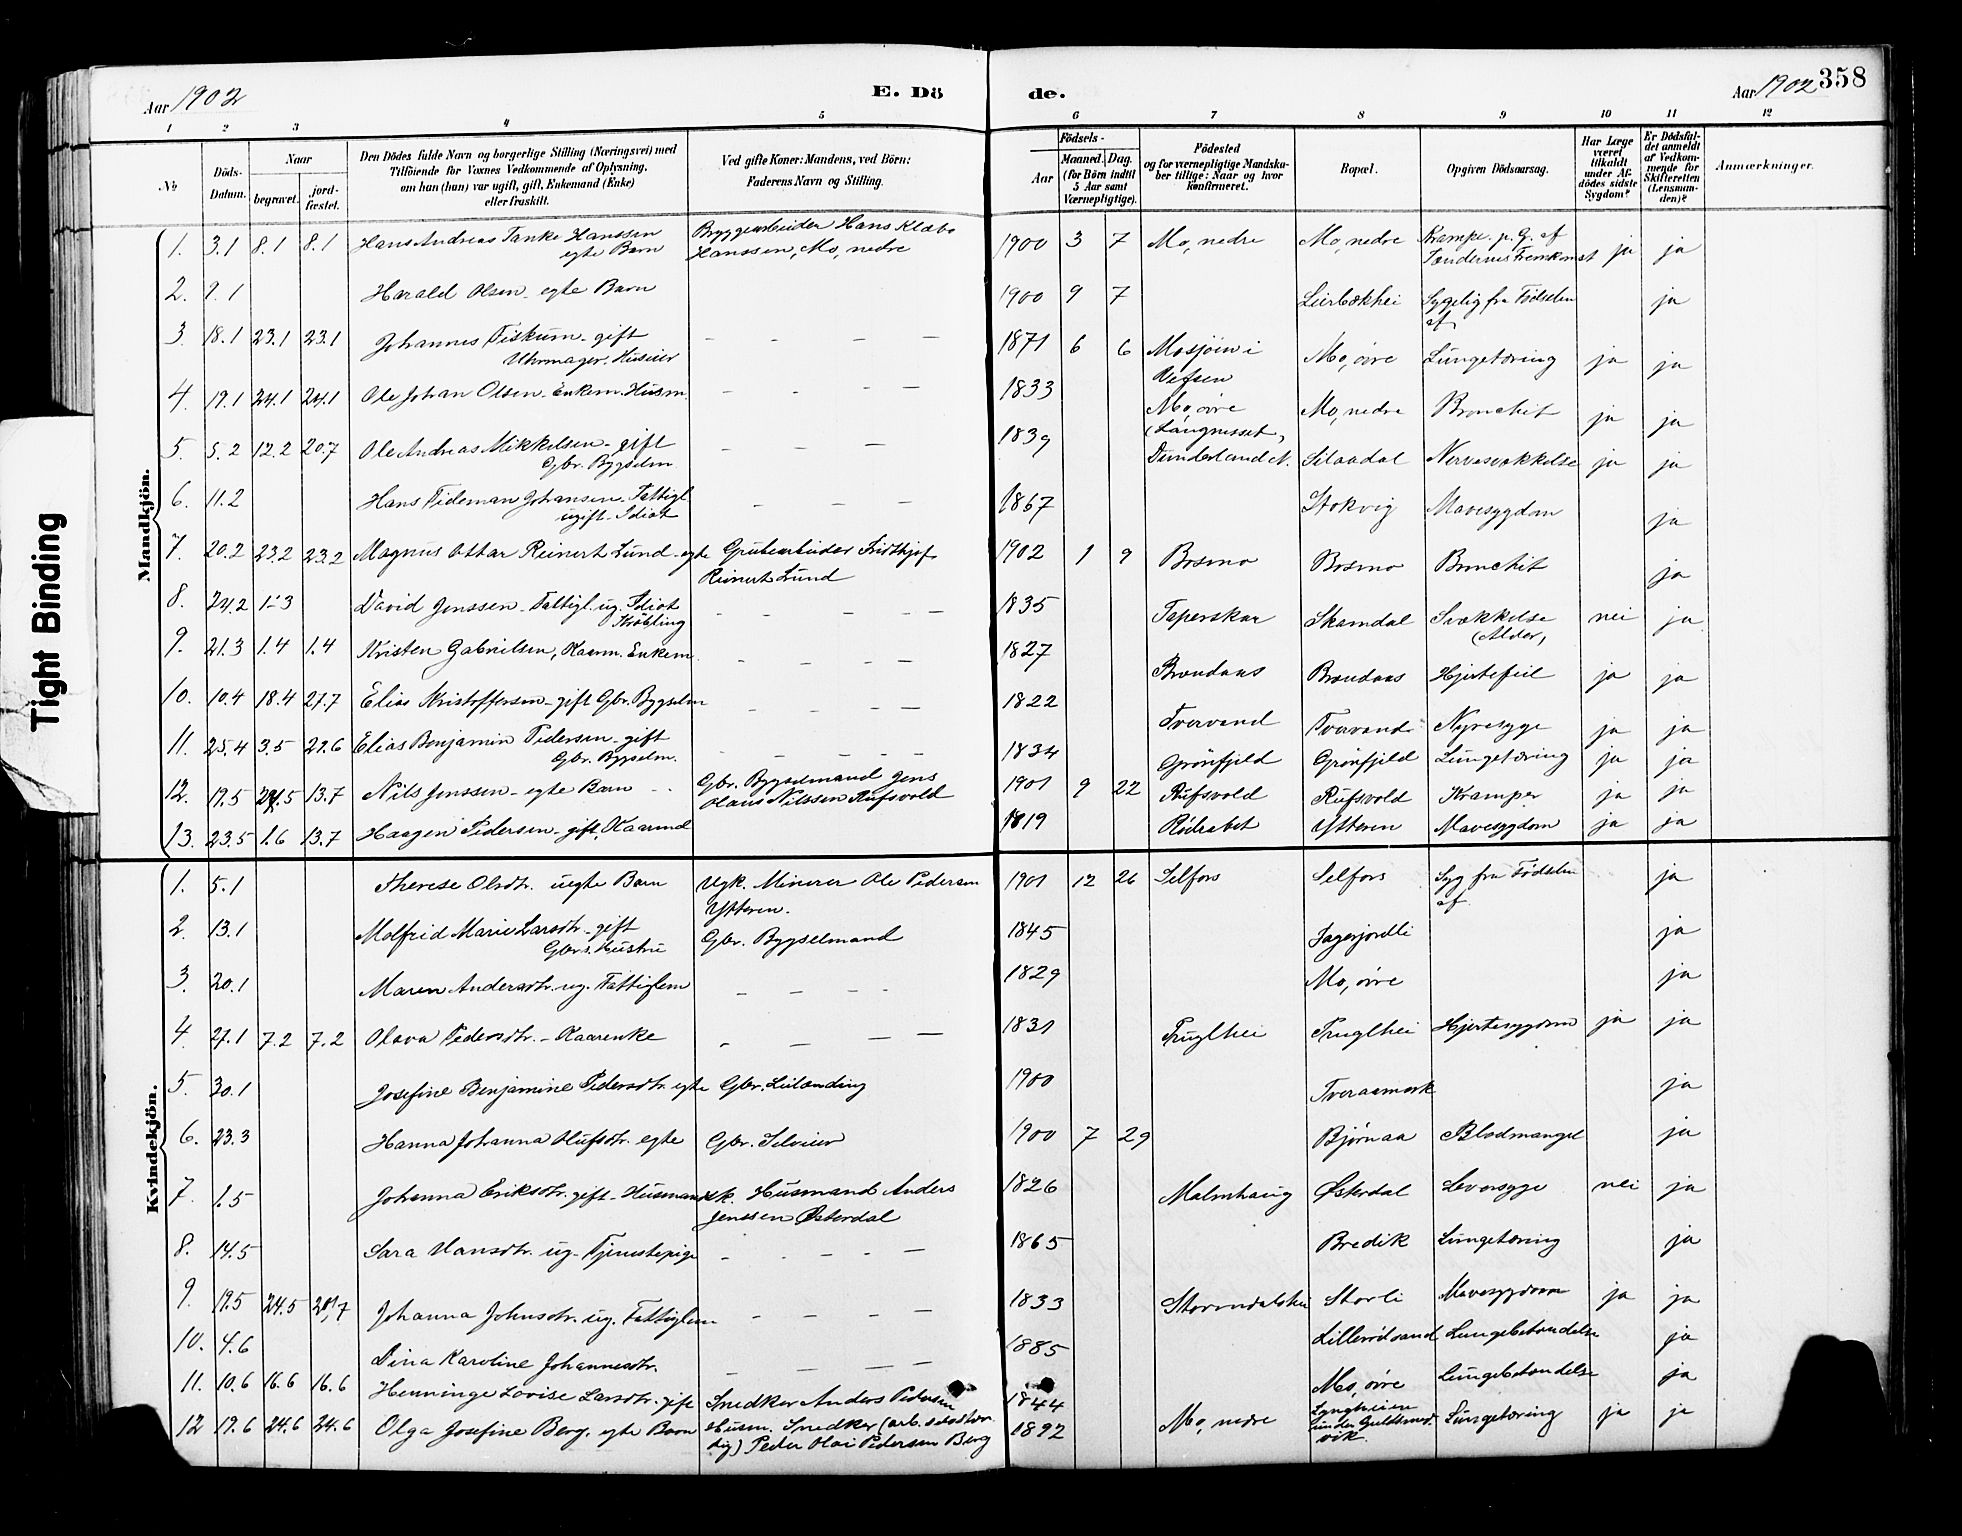 Aar 1902 E. Dö de. Aar 1902 358
1 2 3 4 5 6 7 8 9 10 11 12
No Döds-Datum. Naar begravet. jord-fæstet. Den Dödes fulde Navn og borgerlige Stilling (Næringsvei) med Tilföiende for Voxnes Vedkommende af Oplysning, om han (hun) var ugift, gift, Enkemand (Enke) eller fraskilt. Ved gifte Koner: Mandens, ved Börn: Faderens Navn og Stilling. Födsels- Aar Maaned. Dag. (for Börn indtil 5 Aar samt Værnepligtige). Födested og for værnepligtige Mandskaber tillige: Naar og hvor konfirmeret. Bopæl. Opgiven Dödsaarsag. Har Læge været tilkaldt under Afdödes sidste Sygdom? Er Dödsfaldet anmeldt af Vedkommende for Skifteretten (Lensmanden)? Anmærkninger.
Tight Binding
Mandkjön.
1. 3.1 8.1 8.1 Hans Andreas Tanke Hanssen egte Barn Bryggearbeider Hans Klæbo Hanssen, Mo, nedre 1900 3 7 Mo, nedre Mo, nedre Krampe p. G. af Tændernes Fremkomst ja ja
2. 9.1 Harald Olsen - egte Barn 1900 9 7 Leirbækhei Sygelig fra Fødselen af ja
3. 18.1 23.1 23.1 Johannes Fiskum - gift Uhrmager. Huseier - - - - 1871 6 6 Mosjøen i Vefsen Mo, øvre Lungetæring ja ja
4. 19.1 24.1 24.1 Ole Johan Olsen - Enkem. Husm. - - - - 1833 Mo, øvre (Langnesset) Mo, nedre Bronchit ja ja
5. 5.2 12.2 20.7 Ole Andreas Mikkelsen - gift Gbr. Bygselm - - - 1839 Dunderland N. Silaadal Nervesvækkelse ja ja
6. 11.2 Hans Tideman Johansen - Fattigl. ugift - Idiot - - - - 1867 Stokvig Mavesygdom ja
7. 20.2 23.2 23.2 Magnus Ottar Reinert Lund - egte Grubearbeider Fridthjof Reinert Lund 1902 1 9 Bosmo Bosmo Bronchit ja
8. 24.2 1.3 David Jenssen - Fattigl. ug. Idiot Krøbling - - - - 1835 Taperskar Skamdal Svækkelse (Alder) nei ja
9. 21.3 1.4 1.4 Kristen Gabrielsen, Kaarm. Enkem. - - - - 1827 Brændaas Brændaas Hjertefeil ja ja
10. 10.4 18.4 27.7 Elias Kristoffersen - gift Gbr. Bygselm - - - - 1822 Tvervand Tvervand Nyresyge ja ja
11. 25.4 3.5 29.6 Elias Benjamin Pedersen - gift Gbr. Bygselm. - - - - 1834 Grønfjeld Grønfjeld Lungetæring ja ja
12. 19.5 13.7 Nils Jenssen - egte Barn Gbr. Bygselmand Jens Olaus Nilssen Rufsvold 1901 9 22 Rufsvold Rufsvold Kramper ja ja
13. 23.5 1.6 13.7 Haagen Pedersen - gift, Kaarmd 1819 Ytteren Mavesygdom ja ja
Kvindekjön.
1. 5.1 Therese Olsdtr. uegte Barn Ugk. Minerer Ole Pedersen Ytteren. 1901 12 26 Selfors Selfors Syg fra Fødselen af ja
2. 13.1 Molfrid Marie Larsdtr - gift Gbr.s Hustru Gbr. Bygselmand 1845 Fagerjordli ja
3. 20.1 Maren Andersdtr. ug. Fattiglem - - - - 1829 Mo, øvre ja
4. 27.1 7.2 7.2 Olava Pedersdtr. - Kaarenke - - - - 1831 Truglhei Truglhei Hjertesygdom ja ja
5. 30.1 Josefine Benjamine Pedersdtr. egte Gbr. Leilænding 1900 Tveraamark ja
6. 23.3 Hanna Johanna Olufsdtr. egte Gbr. Selveier 1900 7 29 Bjørnaa Blodmangel ja
7. 1.5 Johanna Eriksdtr. gift - Husmandsk. Husmand Anders Jenssen Østerdal 1826 Malmhaug Østerdal Leversyge nei ja
8. 14.5 Sara Hansdtr. ug. Tjenestepige - - - - 1865 Bredik Lungetæring ja
9. 19.5 24.5 Johanna Johnsdtr. ug. Fattiglem - - - - 1833 Stormdalshei Storli Mavesygdom ja ja
10. 4.6 Dina Karoline Johannesdtr. - - - - 1885 Lillerødvand Lungebetændelse ja
11. 10.6 16.6 16.6 Henninge Lovise Larsdtr. gift Snedker Anders Pedersen 1844 Mo, øvre Lungebetændelse ja
12 19.6 24.6 24.6 Olga Josefine Berg. egte Barn Husm. Snedker (arb. selvstændig) Peder Olai Pedersen Berg 1892 Mo, nedre Lyngheien under Guldsmedvik. Lungetæring ja ja